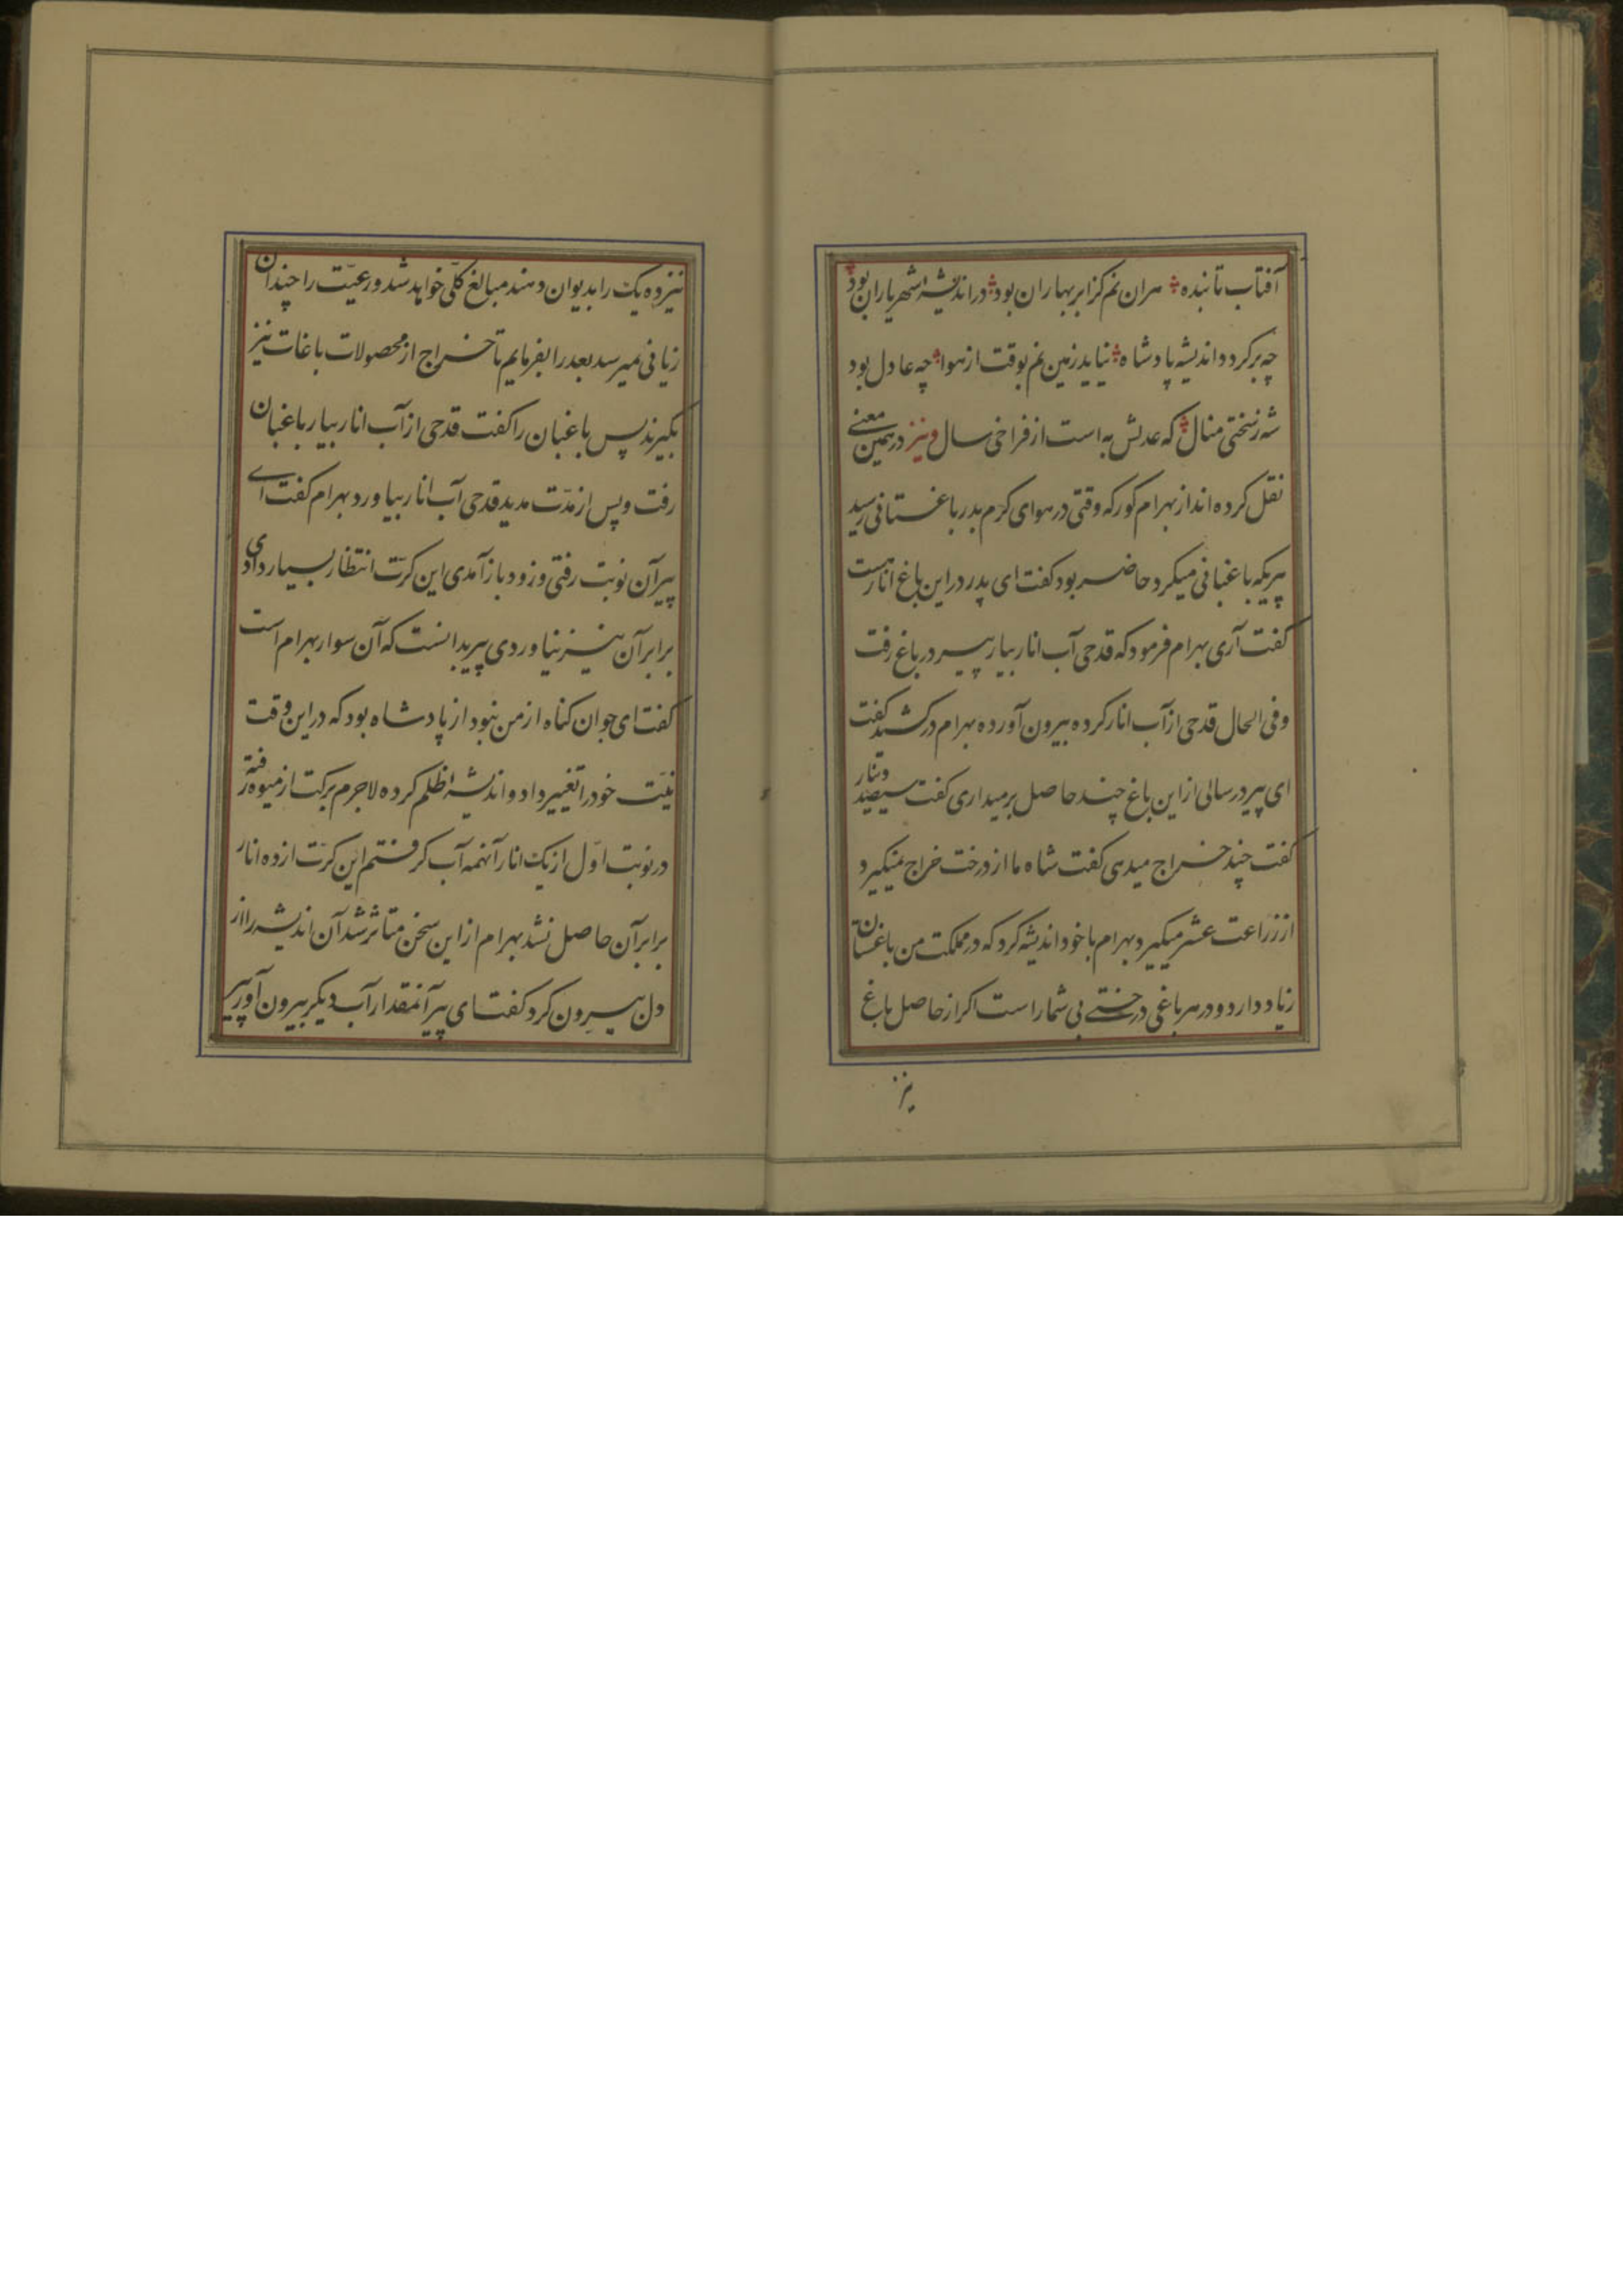 آفتاب تابنده هران نم کز ابر بهاران بود در اندیشه شهریاران بود
چه برکردد اندیشه پادشاه نیاید زمین نم بوقت از هوا چه عادل بود
شه ز سختی منال که عدلش به است از فراخی سال و نیز در همین معنی
نقل کرده اند از بهرام کور که وقتی در هوای کرم بدر باغستانی رسید
پیریکه باغبانی میکرد حاضر بود کفت ای پدر در این باغ انار هست
کفت آری بهرام فرمود که قدحی آب انار بیار پیر در باغ رفت
و فی الحال قدحی از آب انار کرده بیرون آورده بهرام درکشید کفت
ای پیر در سالی از این باغ چند حاصل برمیداری کفت سیصد دینار
کفت چند خراج میدهی کفت شاه ما از درخت خراج نمیکیرد
از زراعت عشر میکیرد بهرام با خود اندیشه کرد که در مملکت من باغستان
زیاد دارد و در هر باغی درختی بی شمار است اکر از حاصل باغ
نیز
نیز ده یک را بدیوان دهند مبالغ کلّی خواهد شد و رعیّت را چندان
زیانی نمیرسد بعد را بفرمایم تا خراج از محصولات باغات نیز
بکیرند پس باغبان را کفت قدحی از آب انار بیار باغبان
رفت و پس از مدّت مدید قدحی آب انار بیاورد بهرام کفت ای
پیر آن نوبت رفتی و زود باز آمدی این کرّت انتظار بسیار دادی
برابر آن نیز نیاوردی پیر بدانست که آن سوار بهرام است
کفت ای جوان کناه از من نبود از پادشاه بود که در این وقت
نیّت خود را تغییر داد و اندیشه ظلم کرده لاجرم برکت از میوه رفته
در نوبت اوّل از یک انار آنهمه آب کرفتم این کرّت از ده انار
برابر آن حاصل نشد بهرام از این سخن متاثر شد آن اندیشه را از
دل بیرون کرد کفت ای پیر آنمقدار آب دیکر بیرون آور پیر